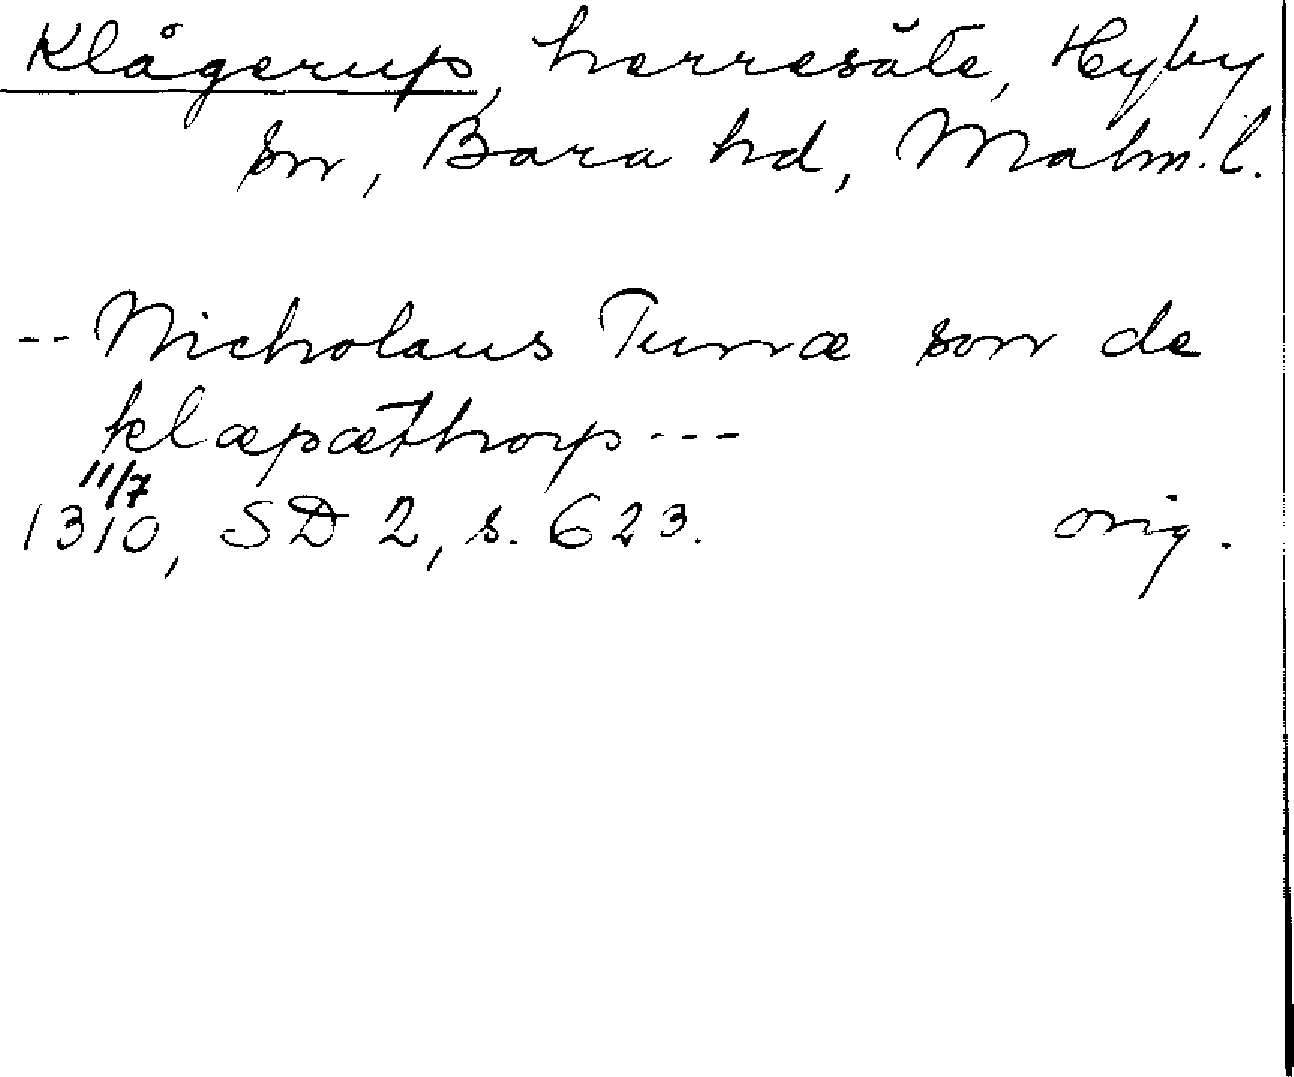 Klågerup, herresäte, Hyby
sn, Bara hd, Malm. l.
-- Nicholaus Turræ son de
klæpæthorp ---
11/7
1310, SD 2, s. 623. orig.